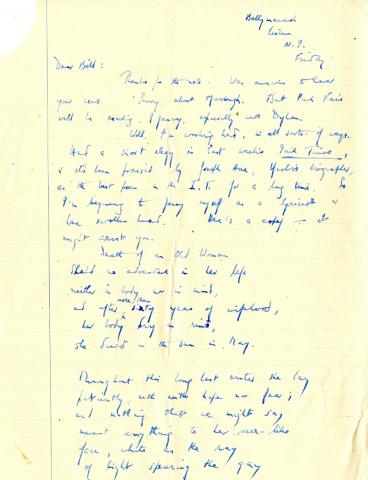 Ballymacash
Lisburn
N. I.
Friday
Dear Bill:
Thanks for the note. Was anxious to hear
your news. Sorry about But Puck Fair
will be exciting, I fancy, especially with Dylan.
Well, I'm working hard, in all sorts of ways.
Had a short elegy in last week's Irish Times,
& it's been praised by Joseph Hone, Yeats's biographer,
as the best poem in the I.T. for a long time. So
I'm beginning to fancy myself as a lyricist &
have swollen head. Here's a copy – it
might interest you.
Death of an Old Woman
She'd no adventure in her life
neither in body nor in mind,
and after more than sixty years of wifehood,
her body dry in rind,
she died in the sun in May.
Throughout this long last winter she lay
patiently, with neither hope nor fear;
and nothing that we might say
meant anything to her seer-like
face, white as the ray
of light spearing the gay